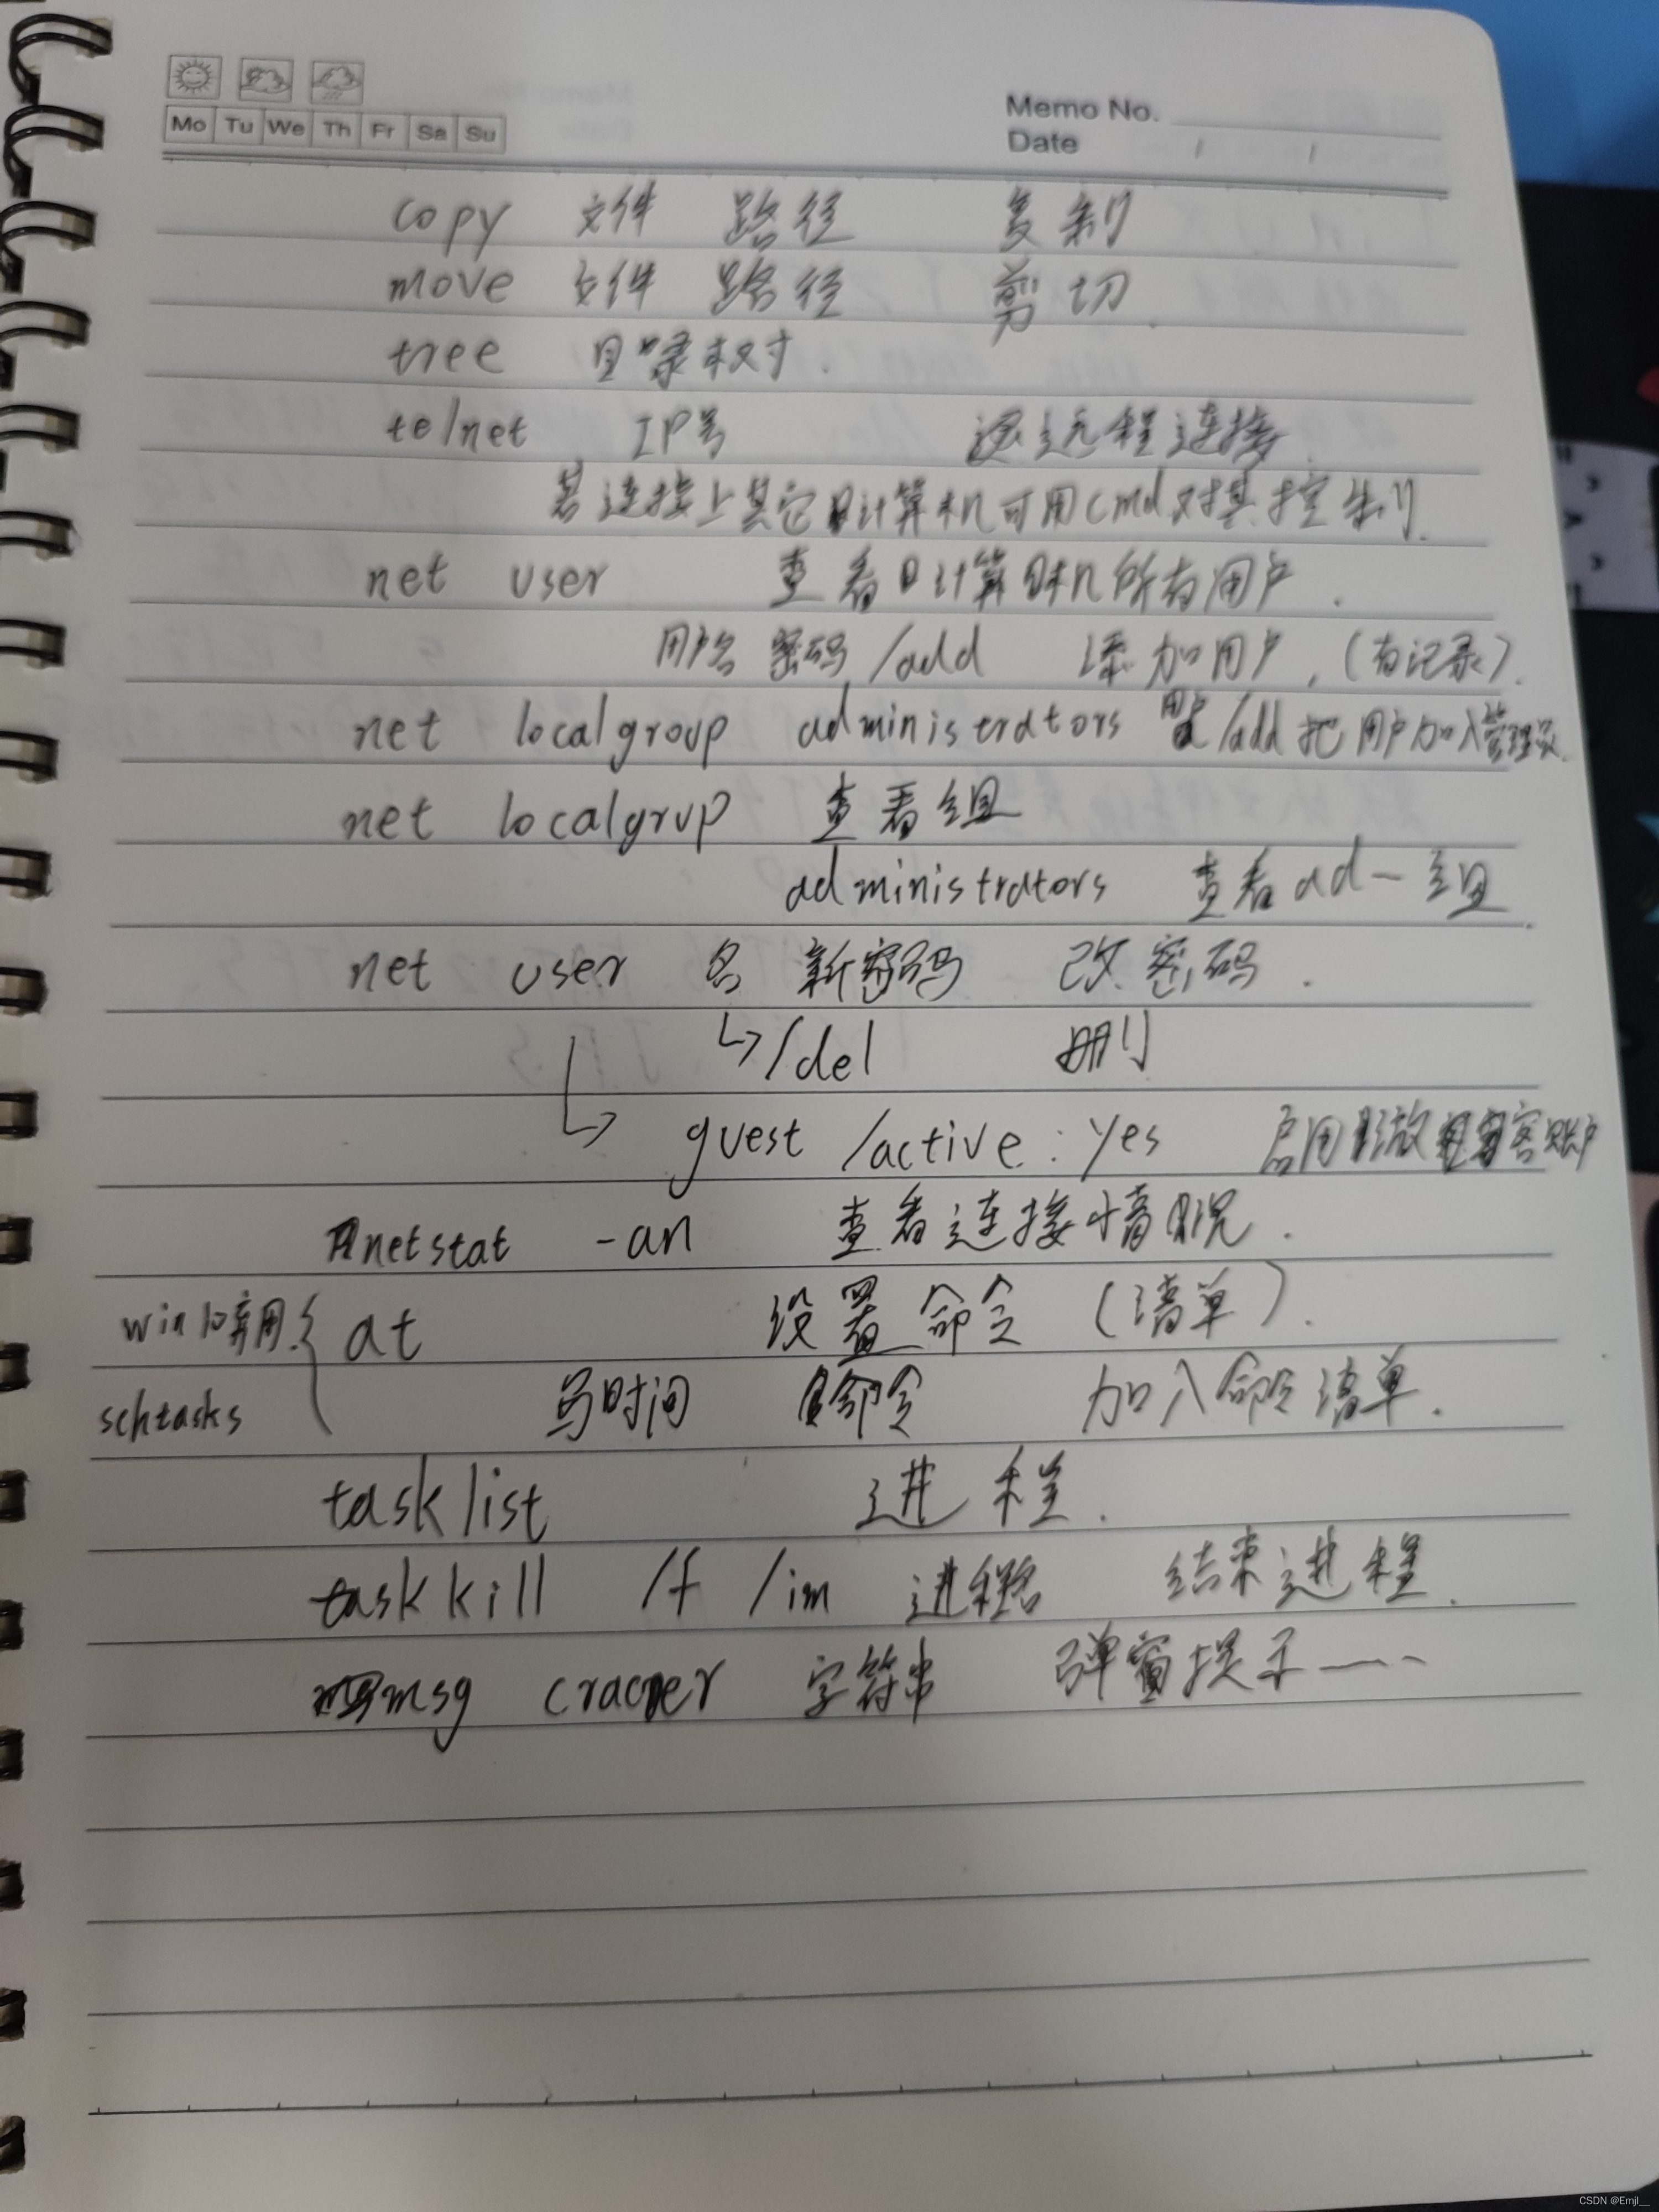 Mo Tu We Th Fr Sa Su
Memo No.
Date / /
copy 文件 路径 复制
move 文件 路径 剪切.
tree 目录树.
telnet IP号 远程连接.
若连接上其它计算机可用cmd对其控制.
net user 查看计算机所有用户.
用户名 密码 /add 添加用户.(有记录).
net localgroup administrators /add 把用户加入管理员.
net localgrup 查看组
administrators 查看ad一组.
net user 名 新密码 改密码.
↳/del 删
↳ guest /active:yes 启用 客账户
netstat -an 查看连接情况.
win10弃用.{ at 设置命令 (清单).
schtasks 写时间 命令 加入命令清单.
tasklist 进程.
taskkill /f /im 进程名 结束进程.
msg 字符串 弹窗提示一一
CSDN @Emjl__